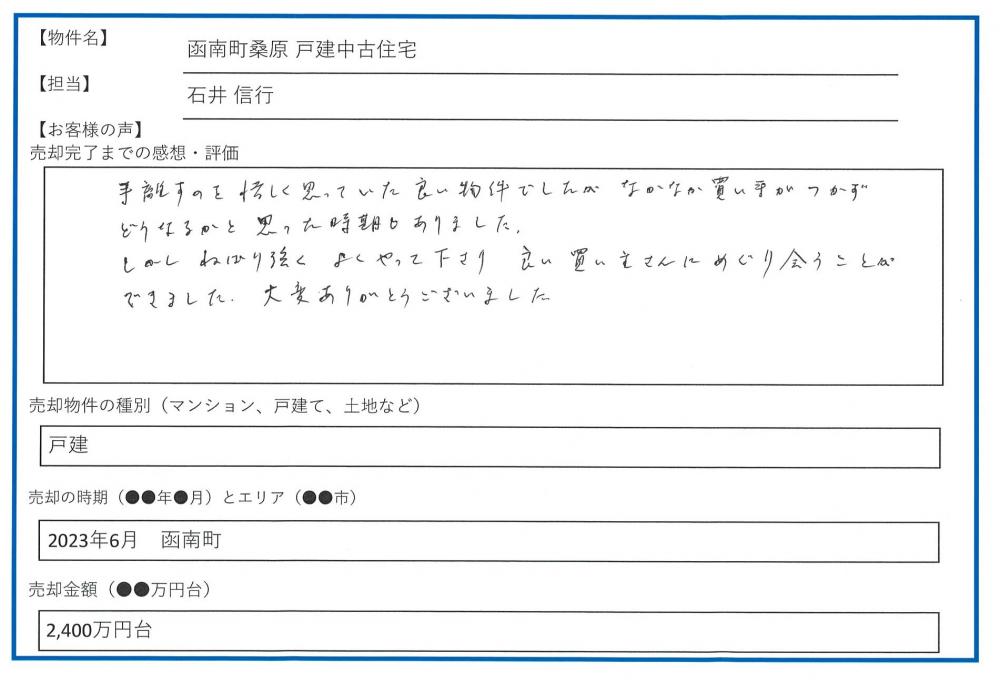 【物件名】
函南町桑原 戸建中古住宅
【担当】
石井 信行
【お客様の声】
売却完了までの感想・評価
手離すのを惜しく思っていた良い物件でしたが なかなか買い手がつかず
どうなるかと思った時期もありました。
しかし ねばり強く よくやって下さり 良い買い主さんにめぐり会うことが
できました. 大変ありがとうございました
売却物件の種別（マンション、戸建て、土地など）
戸建
売却の時期（●●年●月）とエリア（●●市）
2023年6月　函南町
売却金額（●●万円台）
2,400万円台